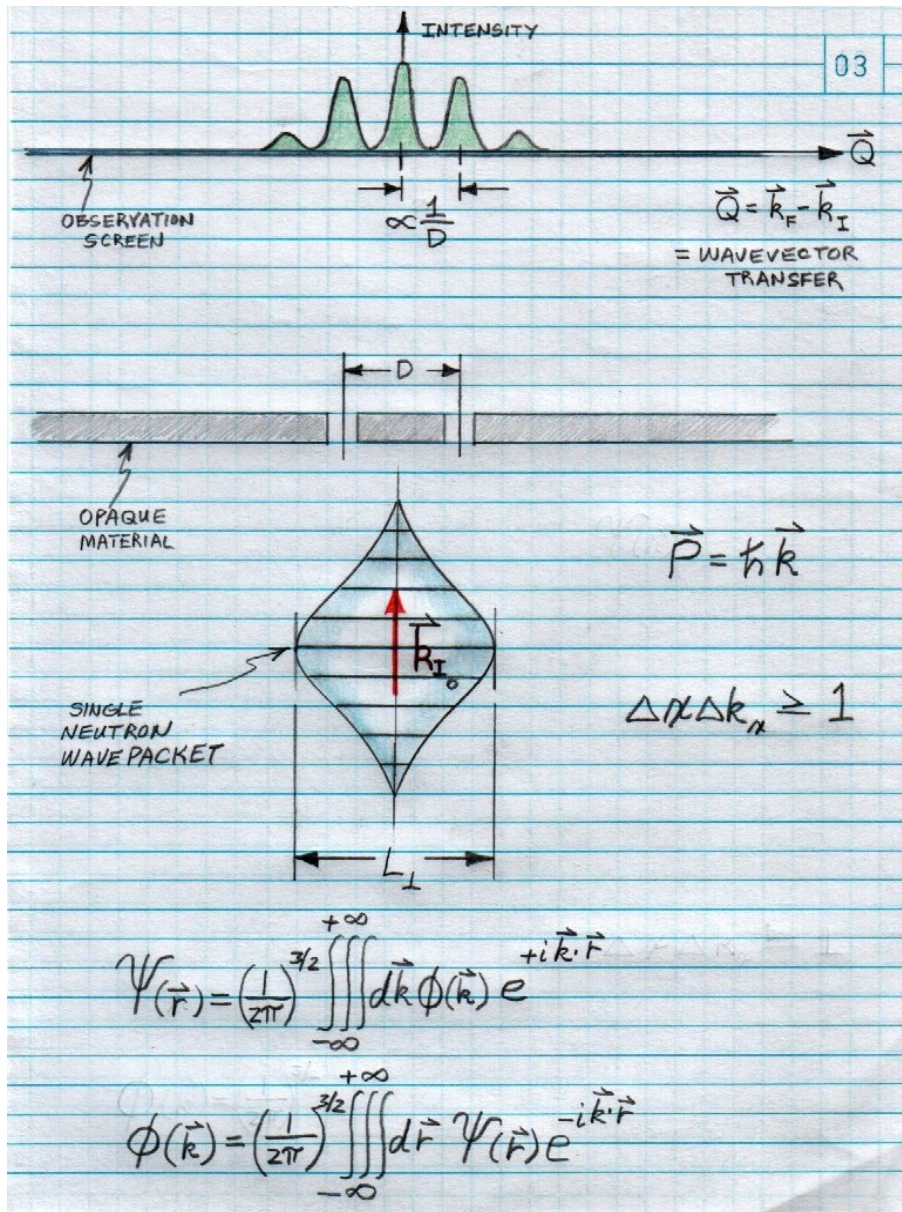 INTENSITY
03
Q⃗
OBSERVATION
SCREEN
∝ 1/D
Q⃗ = k⃗_F - k⃗_I
= WAVEVECTOR
TRANSFER
D
OPAQUE
MATERIAL
P⃗ = ħk⃗
k⃗_I₀
SINGLE
NEUTRON
WAVE PACKET
ΔxΔk_x ≥ 1
L_⊥
Ψ(r⃗) = (1/2π)^3/2 ∭_-∞^+∞ dk⃗ ϕ(k⃗) e^+ik⃗·r⃗
ϕ(k⃗) = (1/2π)^3/2 ∭_-∞^+∞ dr⃗ Ψ(r⃗) e^-ik⃗·r⃗